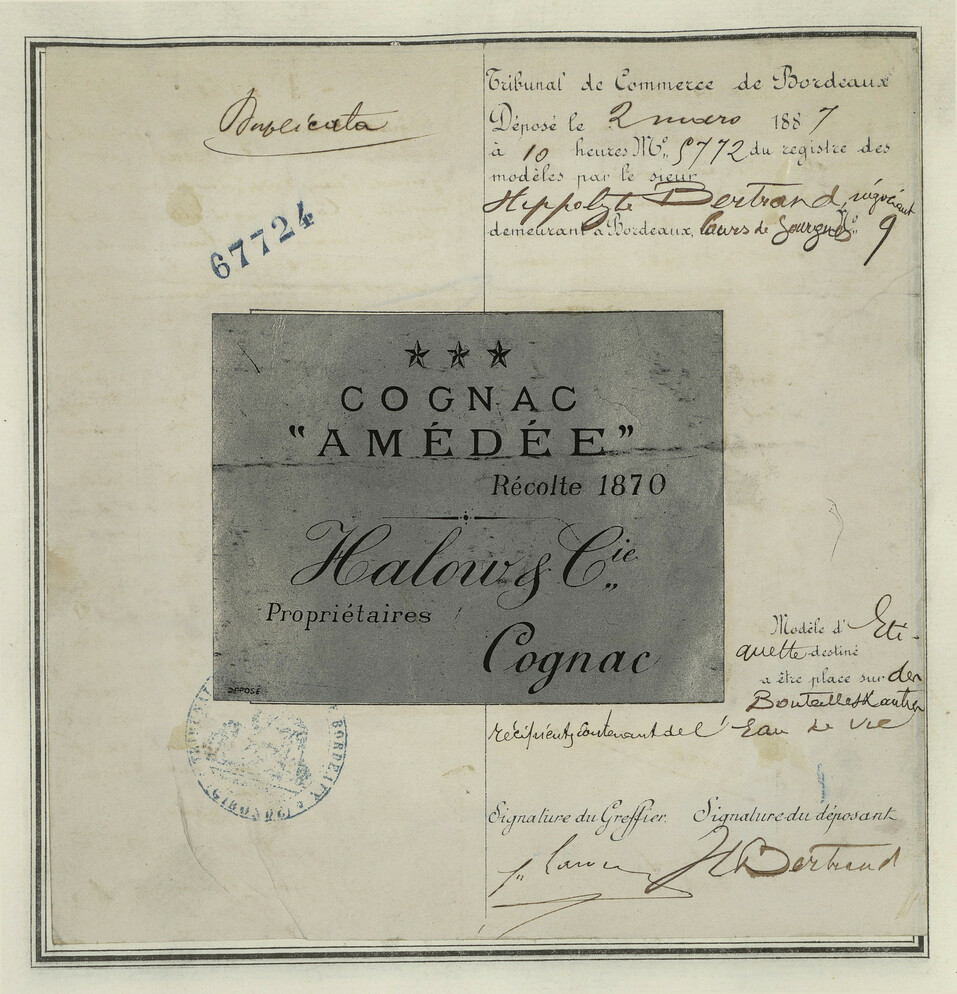 Duplicata
67724
Tribunal de Commerce de Bordeaux
Déposé le 2 mars 1887
à 10 heures No 5772 du registre des
modèles par le sieur
Hippolyte Bertrand, négociant
demeurant à Bordeaux, Cours de Gourgue No 9
★ ★ ★
COGNAC
"AMÉDÉE"
Récolte 1870
Halow & Cie
Propriétaires
Cognac
DÉPOSÉ
Modèle d'Eti-
quette destiné
a être place sur des
Bouteilles & autres
récipients contenant de l'Eau de Vie
TRIBUNAL BORDEAUX
(GIRONDE)
Signature du Greffier. Signature du déposant
H Bertrand